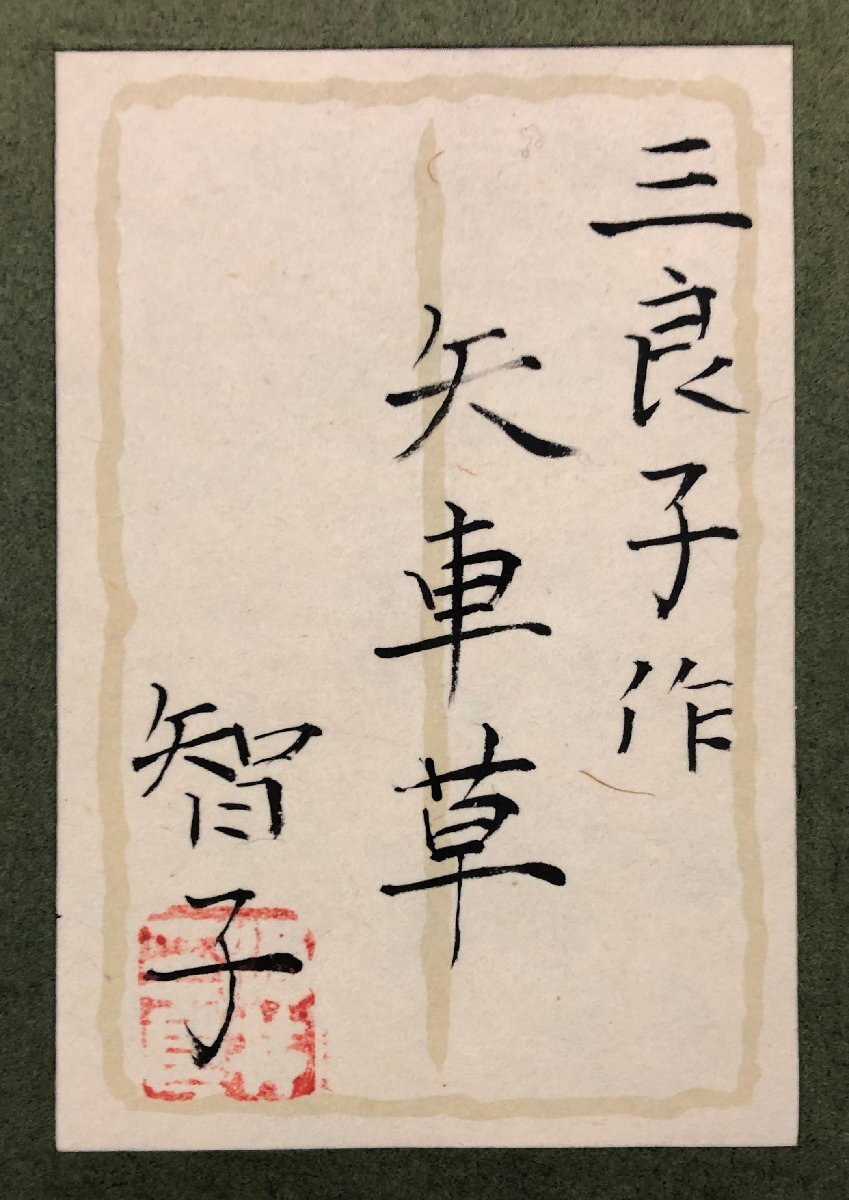 三良子作
矢車草
智子